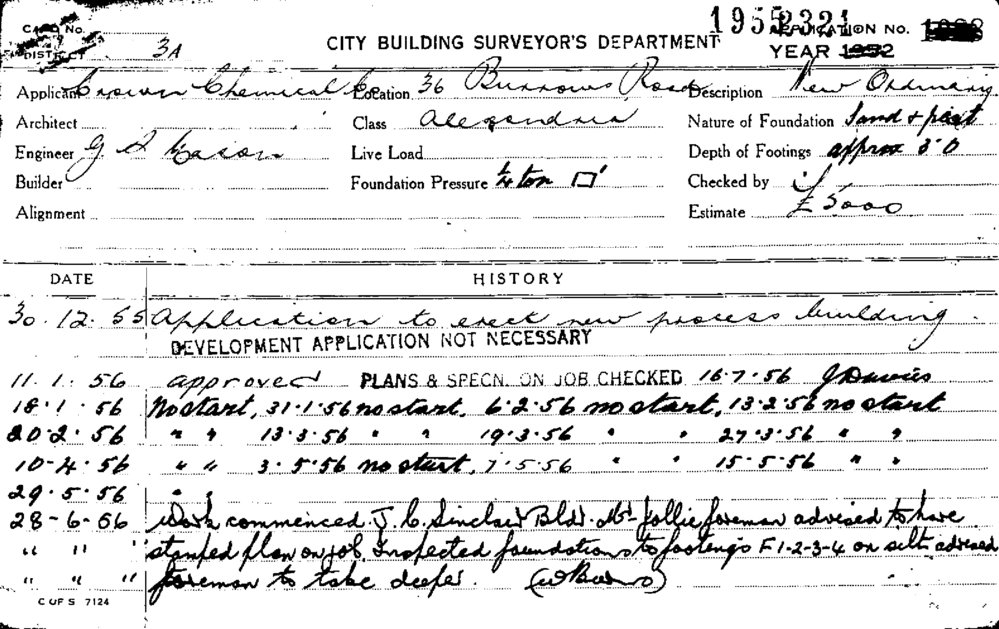 1955 2321
CARD No. APPLICATION NO.
DISTRICT 3A CITY BUILDING SURVEYOR'S DEPARTMENT YEAR 1952
Applicant Crown Chemical Co Location 36 Burrows Road Description New Ordinary
Architect Class Alexandria Nature of Foundation Sand & peat
Engineer G S Live Load Depth of Footings approx 3'0
Builder Foundation Pressure ¼ ton □' Checked by
Alignment Estimate £5000
DATE HISTORY
30.12.55 Application to erect new process building.
DEVELOPMENT APPLICATION NOT NECESSARY
11.1.56 approved PLANS & SPECN. ON JOB CHECKED 16.7.56
18.1.56 No start, 31.1.56 no start, 6.2.56 no start, 13.2.56 no start
20.2.56 " " 13.3.56 " " 19.3.56 " " 27.3.56 " "
10-4.56 " " 3.5.56 no start, 7.5.56 " " 15.5.56 " "
29.5.56 " "
28-6-56 Work commenced. J. C. Sinclair Bldr. Mr. Jollie foreman advised to have
" " " stamped plan on job. Inspected foundations to footings F1-2-3-4 on silt, advised
" " " foreman to take deeper.
C OF S 7124